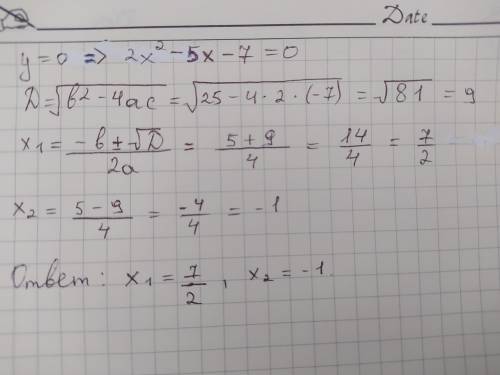 Date
y=0 => 2x² - 5x - 7 = 0
D = √(b² - 4ac) = √(25 - 4 · 2 · (-7)) = √81 = 9
x₁ = (-b ± √D)/2a = (5 + 9)/4 = 14/4 = 7/2
x₂ = (5 - 9)/4 = -4/4 = -1
Ответ: x₁ = 7/2, x₂ = -1